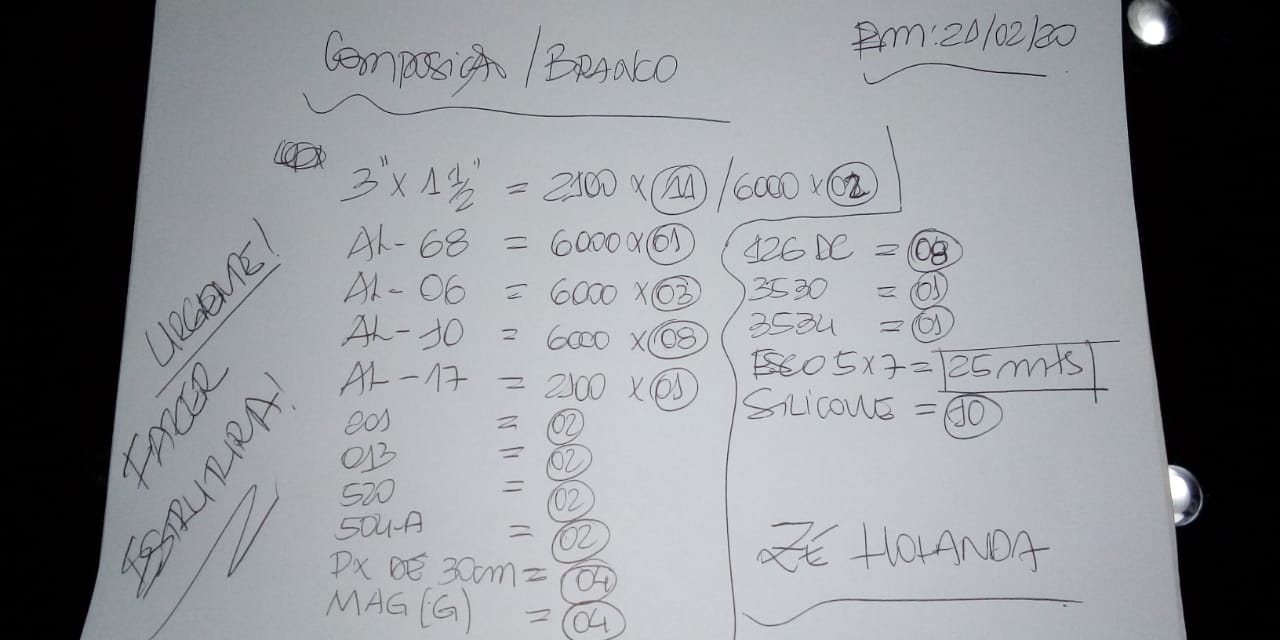 Composição / BRANCO
Em: 21/02/20
3" x 1 1/2" = 2100 x 11 / 6000 x 02
AL-68 = 6000 x 01
AL-06 = 6000 x 03
AL-10 = 6000 x 08
AL-17 = 2100 x 01
801 = 02
013 = 02
520 = 02
504-A = 02
PX DE 30cm = 04
MAG (G) = 04
126 DC = 08
3530 = 01
3534 = 01
ESC 05x7 = 25 mts
SILICONE = 10
ZÉ HOLANDA
URGENTE!
FAZER
ESTRUTURA!